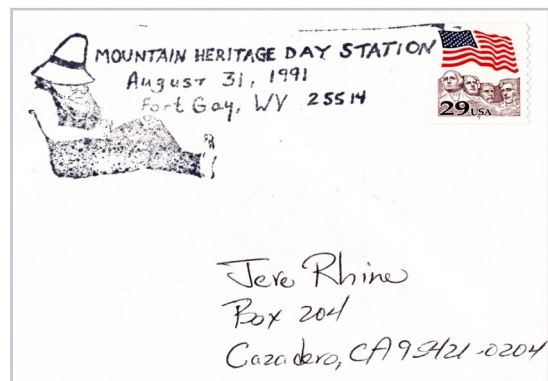 MOUNTAIN HERITAGE DAY STATION
August 31, 1991
Fort Gay, WV 25514
29USA
Jere Rhine
Box 204
Cazadero, CA 95421-0204